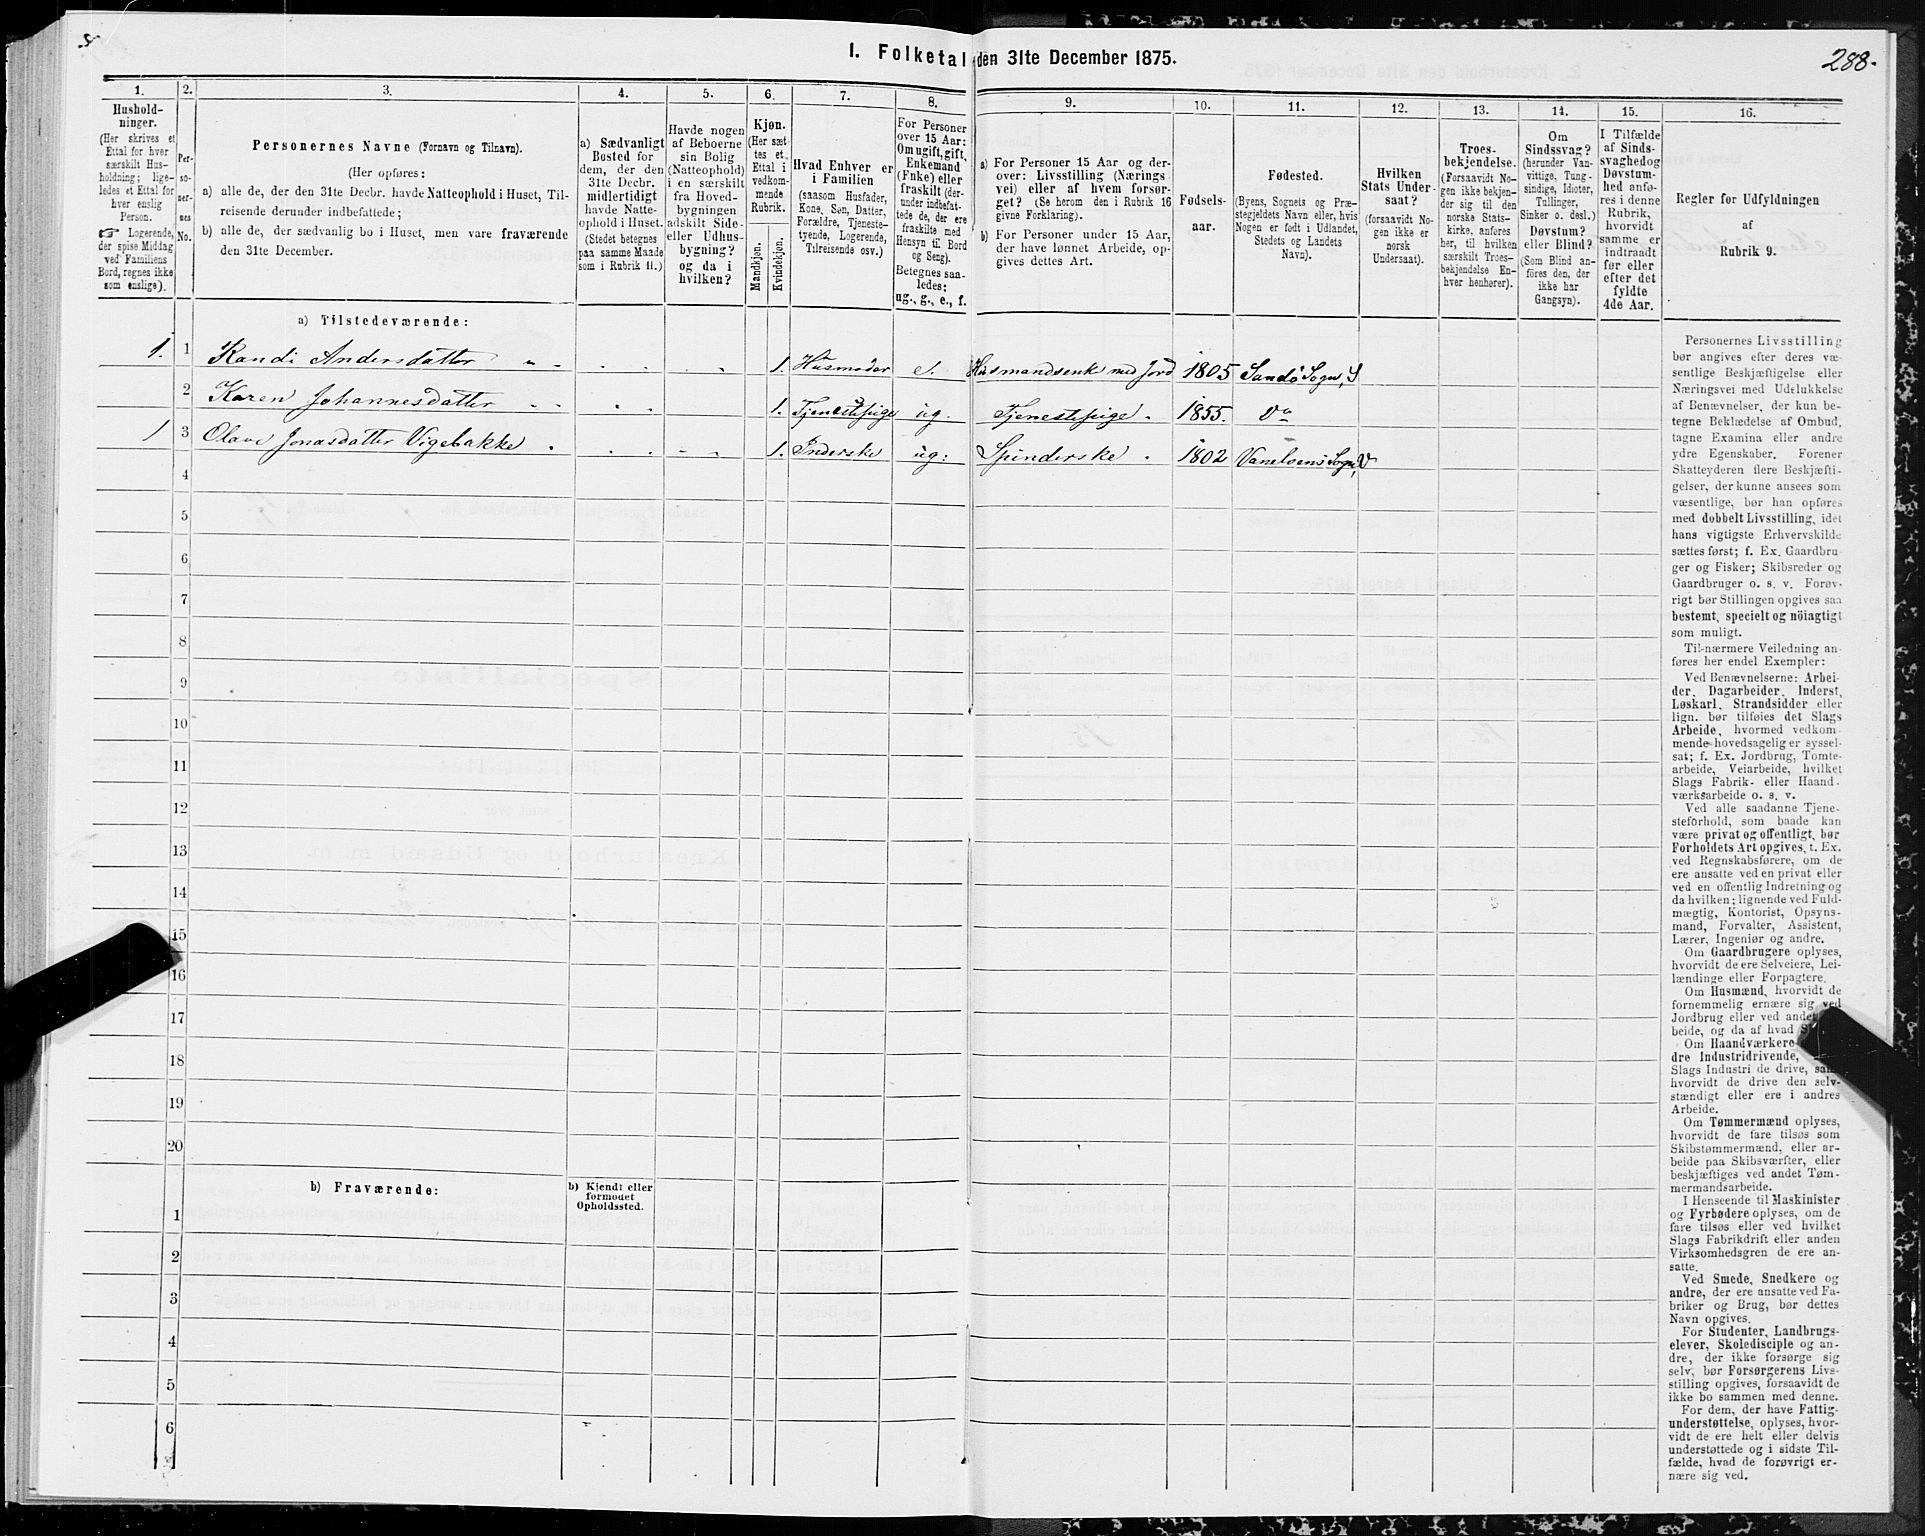 1. Folketal den 31te December 1875.
288.
1.
Hushold-
ninger.
(Her skrives et
Ettal for hver
særskilt Hus-
holdning; lige-
ledes et Ettal for
hver enslig
Person.
☞ Logerende,
der spise Middag
ved Familiens
Bord, regnes ikke
som enslige).
2.
Per-
so-
ner-
nes
No.
3.
Personernes Navne (Fornavn og Tilnavn).
(Her opføres:
a) alle de, der den 31te Decbr. havde Natteophold i Huset, Til-
reisende derunder indbefattede;
b) alle de, der sædvanlig bo i Huset, men vare fraværende
den 31te December.
4.
a) Sædvanligt
Bosted for
dem, der den
31te Decbr.
midlertidigt
havde Natte-
ophold i Huset.
(Stedet betegnes
paa samme Maade
som i Rubrik 11.)
5.
Havde nogen
af Beboerne
sin Bolig
(Natteophold)
i en særskilt
fra Hoved-
bygningen
adskilt Side-
eller Udhus-
bygning?
og da i
hvilken?
6.
Kjøn.
(Her sæt-
tes et
Ettal i
vedkom-
mende
Rubrik.
Mandkjøn.
Kvindekjøn.
7.
Hvad Enhver er
i Familien
(saasom Husfader,
Kone, Søn, Datter,
Forældre, Tjeneste-
tyende, Logerende,
Tilreisende osv.)
8.
For Personer
over 15 Aar:
Om ugift, gift,
Enkemand
(Enke) eller
fraskilt (der-
under indbefat-
tede de, der ere
fraskilte med
Hensyn til Bord
og Seng).
Betegnes saa-
ledes:
ug., g., e., f.
9.
a) For Personer 15 Aar og der-
over: Livsstilling (Nærings-
vei) eller af hvem forsør-
get? (Se herom den i Rubrik 16
givne Forklaring).
b) For Personer under 15 Aar,
der have lønnet Arbeide, op-
gives dettes Art.
10.
Fødsels-
aar.
11.
Fødested.
(Byens, Sognets og Præ-
stegjeldets Navn eller, hvis
Nogen er født i Udlandet,
Stedets og Landets
Navn).
12.
Hvilken
Stats Under-
saat?
(forsaavidt No-
gen ikke er
norsk
Undersaat).
13.
Troes-
bekjendelse.
(Forsaavidt No-
gen ikke bekjen-
der sig til den
norske Stats-
kirke, anføres
her, til hvilken
særskilt Troes-
bekjendelse En-
hver henhører).
14.
Om
Sindssvag?
(herunder Van-
vittige, Tung-
sindige, Idioter,
Tullinger,
Sinker o. desl.)
Døvstum?
eller Blind?
(Som Blind an-
føres den, der
ikke har
Gangsyn).
15.
I Tilfælde
af Sinds-
svaghed og
Døvstum-
hed anfø-
res i denne
Rubrik,
hvorvidt
samme er
indtraadt
før eller
efter det
fyldte
4de Aar.
16.
Regler for Udfyldningen
af
Rubrik 9.
a) Tilstedeværende:
1. 1 Randi Andersdatter 1. Husmoder e. Husmandsenk med Jord 1805 Sandö Sogn, S
2 Karen Johannesdatter 1. Tjenestepige ug. Tjenestepige 1855. Do
1 3 Olave Jonasdatter Vigebakke 1. Inderske ug: Spinderske 1802 Vanelvens Sogn, V
4
5
6
7
8
9
10
11
12
13
14
15
16
17
18
19
20
b) Fraværende:
b) Kjendt eller
formodet
Opholdssted.
1
2
3
4
5
6
Personernes Livsstilling
bør angives efter deres væ-
sentlige Beskjæftigelse eller
Næringsvei med Udelukkelse
af Benævnelser, der kun be-
tegne Beklædelse af Ombud,
tagne Examina eller andre
ydre Egenskaber. Forener
Skatteyderen flere Beskjæfti-
gelser, der kunne ansees som
væsentlige, bør han opføres
med dobbelt Livsstilling, idet
hans vigtigste Erhvervskilde
sættes først; f. Ex. Gaardbru-
ger og Fisker; Skibsreder og
Gaardbruger o. s. v. Forøv-
rigt bør Stillingen opgives saa
bestemt, specielt og nöiagtigt
som muligt.
Til nærmere Veiledning an-
føres her endel Exempler:
Ved Benævnelserne: Arbei-
der, Dagarbeider, Inderst,
Løskarl, Strandsidder eller
lign. bør tilføies det Slags
Arbeide, hvormed vedkom-
mende hovedsagelig er syssel-
sat; f. Ex. Jordbrug, Tomte-
arbeide, Veiarbeide, hvilket
Slags Fabrik- eller Haand-
værksarbeide o. s. v.
Ved alle saadanne Tjene-
steforhold, som baade kan
være privat og offentligt, bør
Forholdets Art opgives, t. Ex.
ved Regnskabsførere, om de
ere ansatte ved en privat eller
ved en offentlig Indretning og
da hvilken; lignende ved Fuld-
mægtig, Kontorist, Opsyns-
mand, Forvalter, Assistent,
Lærer, Ingeniør og andre.
Om Gaardbrugere oplyses,
hvorvidt de ere Selveiere, Lei-
lændinge eller Forpagtere.
Om Husmænd, hvorvidt de
fornemmelig ernære sig ved
Jordbrug eller ved andet
beide, og da af hvad
Om Haandværkere
dre Industridrivende,
Slags Industri de drive, samt
hvorvidt de drive den selv-
stændigt eller ere i andres
Arbeide.
Om Tømmermænd oplyses,
hvorvidt de fare tilsøs som
Skibstømmermænd, eller ar-
beide paa Skibsværfter, eller
beskjæftiges ved andet Tøm-
mermandsarbeide.
I Henseende til Maskinister
og Fyrbødere oplyses, om de
fare tilsøs eller ved hvilket
Slags Fabrikdrift eller anden
Virksomhedsgren de ere an-
satte.
Ved Smede, Snedkere og
andre, der ere ansatte ved Fa-
briker og Brug, bør dettes
Navn opgives.
For Studenter, Landbrugs-
elever, Skoledisciple og an-
dre, der ikke forsørge sig
selv, bør Forsørgerens Livs-
stilling opgives, forsaavidt de
ikke bo sammen med denne.
For dem, der have Fattig-
understøttelse, oplyses, hvor-
vidt de ere helt eller delvis
understøttede og i sidste Til-
fælde, hvad de forøvrigt er-
nære sig ved.